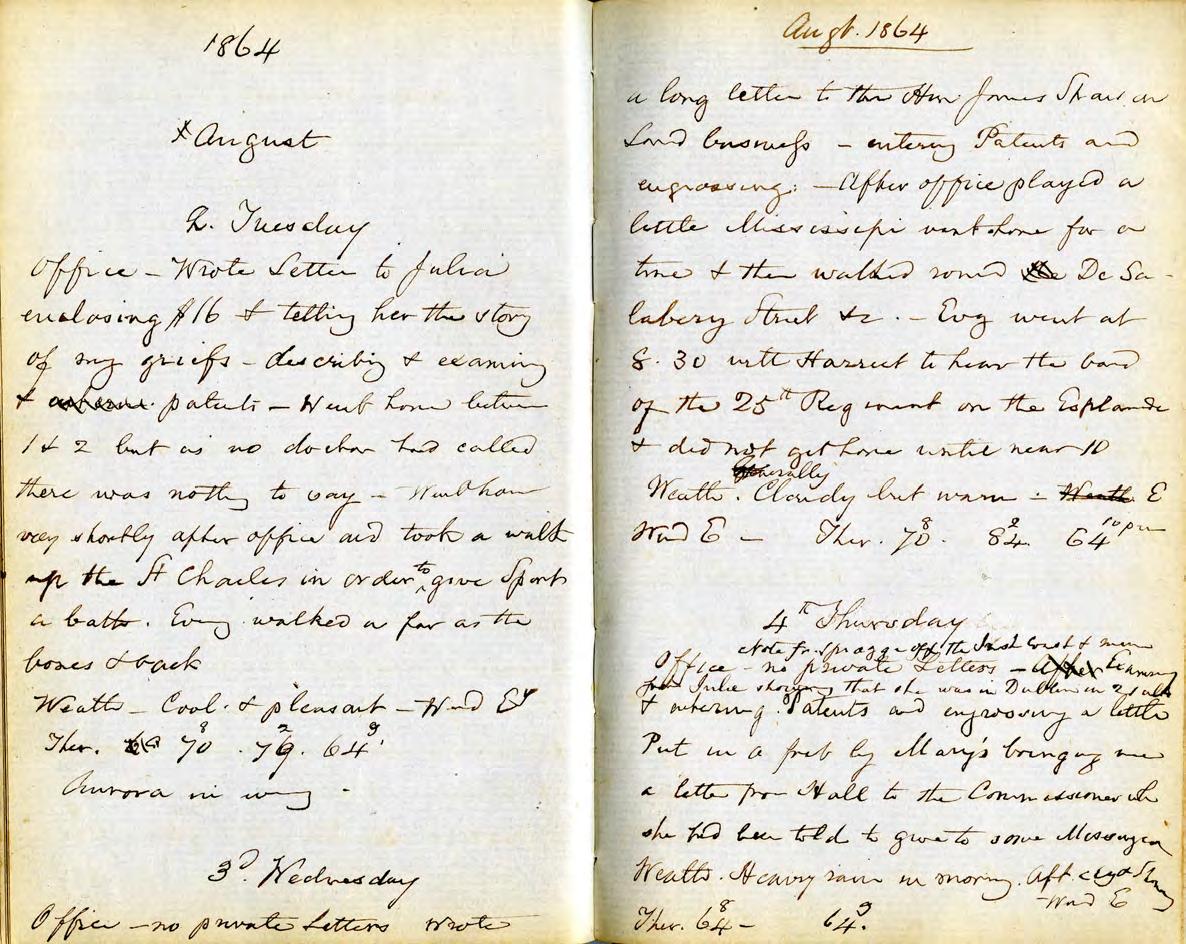 1864
August
2. Tuesday
Office - Wrote Letter to Julia
enclosing $16 & telling her the story
of my griefs - describing & examing
& patents - Went home between
1 & 2 but as no doctor had called
there was nothing to say - Went home
very shortly after office and took a walk
up the St Charles in order to give Sport
a bath. Eveng walked a far as the
bones & back
Weath - Cool & pleasant - Wind Ey
Ther. 70 8 . 79. 2 64 9.
Aurora in eveng -
3d. Wednesday
Office - no private Letters wrote
Augt. 1864
a long letter to the Hon James Shaw on
Land business - entering Patents and
engrossing: - After office played a
little Mississipi went home for a
time & then walked round the De Sa-
labery Street &c. - Evg went at
8.30 with Harriet to hear the band
of the 25th Regiment on the Esplande
& did not get home until near 10
Generally
Weath. Cloudy but warm - Weath E
Wind E - Ther. 70 8. 82 2. 64 10 pm
4th Thursday
Note fr. Spragge off the
Office - no private Letters - After Examing
from Julie showing that she was in Dublin in
& entering Patents and engrossing a little
Put in a fret by Mary's bringing me
a letter from Hall to the Commissioner wh
she had been told to give to some Messenger
Weath. Heavy rain in morning. Aft.
Wind E
Ther. 64 8 - 64 9.